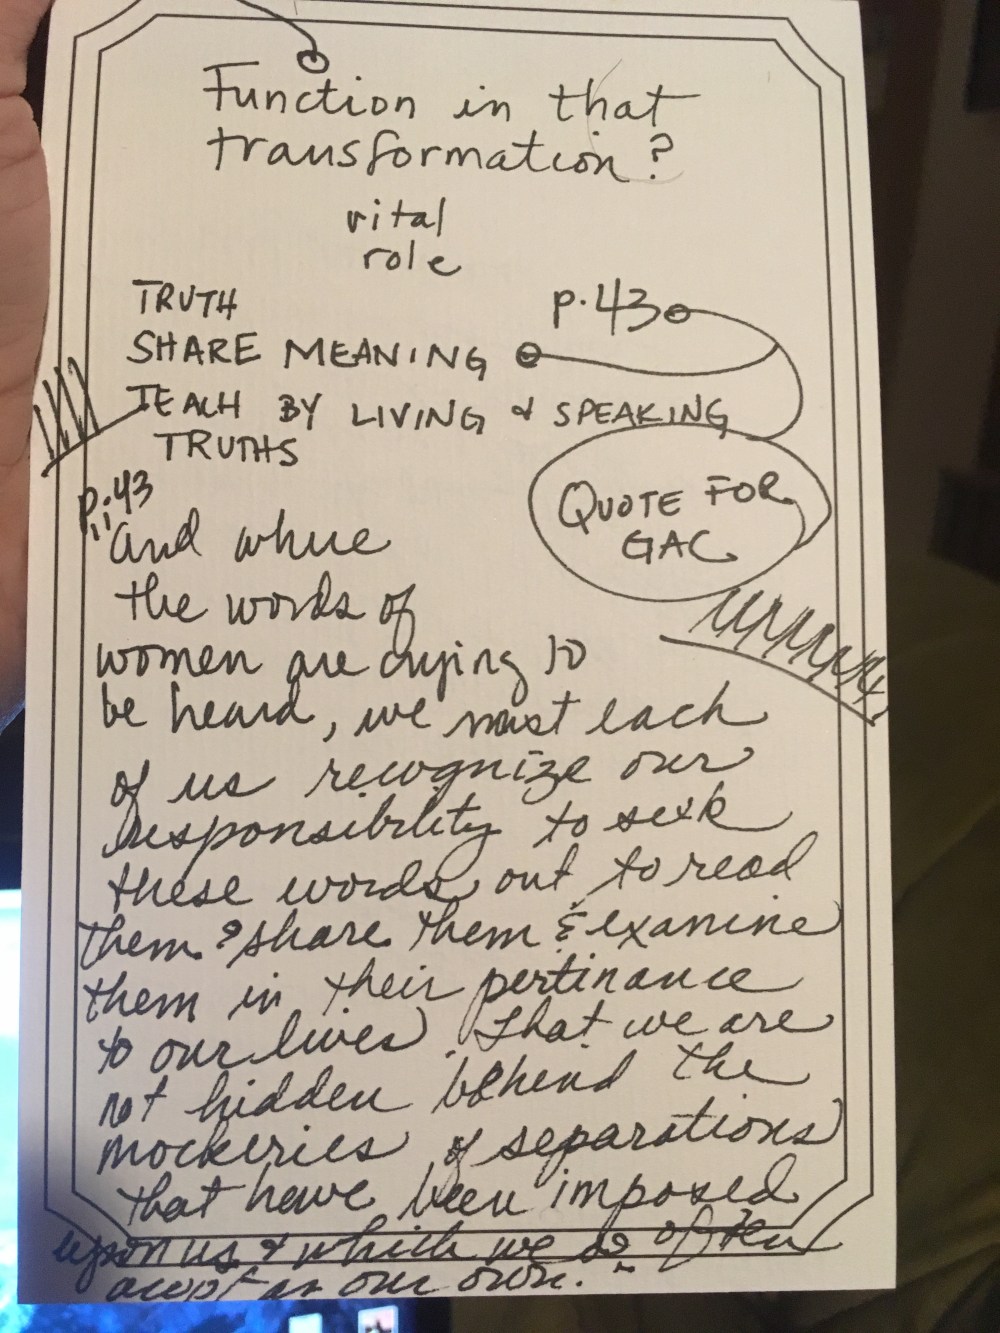 Function in that
transformation?
vital
role
TRUTH
p.43
SHARE MEANING
TEACH BY LIVING & SPEAKING
TRUTHS
QUOTE FOR
GAC
p.43
"and where
the words of
women are crying to
be heard, we must each
of us recognize our
responsibility to seek
these words out to read
them & share them & examine
them in their pertinance
to our lives. That we are
not hidden behind the
mockeries of separations
that have been imposed
upon us & which we so often
accept as our own."